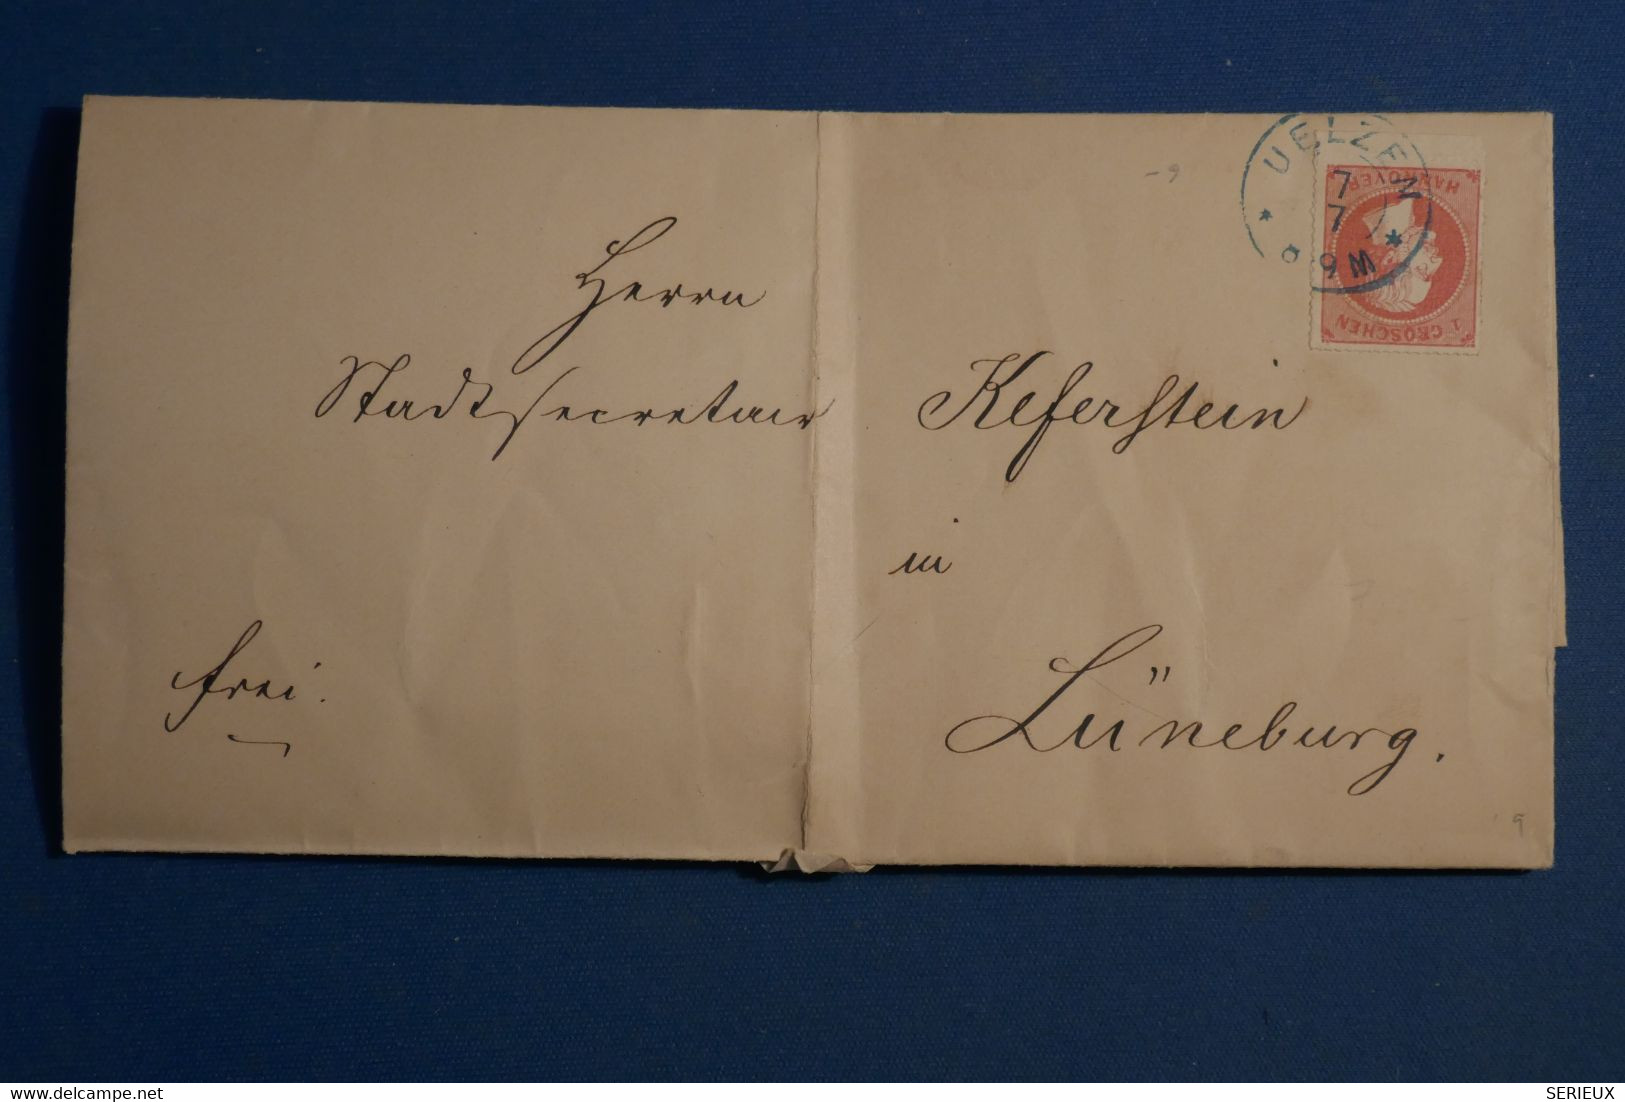 UELZEN
7
7
6
HANNOVER
1 GROSCHEN
Herrn
Stadtsecretair Keferstein
in
frei.
Lüneburg.
www.delcampe.net
SERIEUX